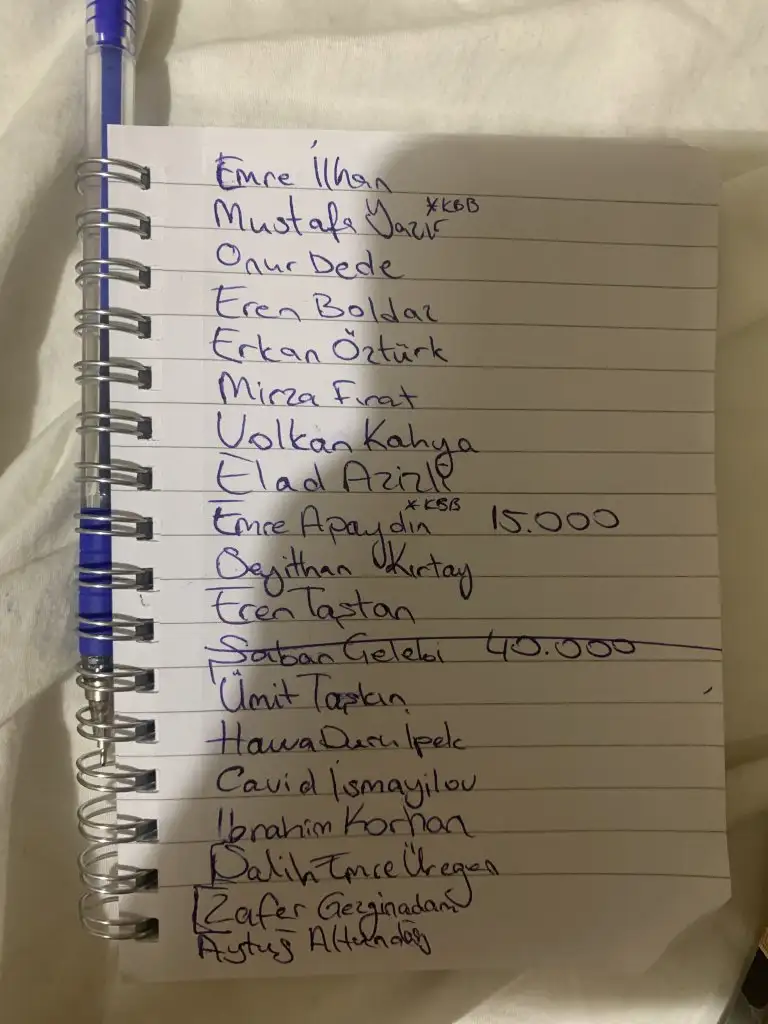 Emre İlhan
Mustafa Yazır *KBB
Onur Dede
Eren Boldaz
Erkan Öztürk
Mirza Fırat
Volkan Kahya
Elad Azizli
Emre Apaydın *KBB 15.000
Seyithan Kırtay
Eren Taştan
Şaban Çelebi 40.000
Ümit Taşkın
Hawa Duru Ipek
Cavid İsmayilov
Ibrahim Korhan
Salih Emre Üregen
Zafer Gezginadam
Aytuğ Altundağ